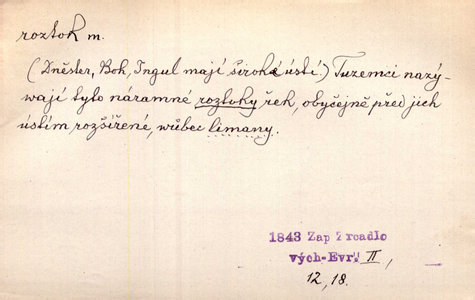 roztok m.
(Dněster, Boh, Ingul mají široké ústí.) Tuzemci nazý-
wají tyto náramné roztoky řek, obyčejně před jich
ústím rozšířené, wůbec limany.
1843 Zap Zrcadlo
vých-Evr. II,
12, 18.